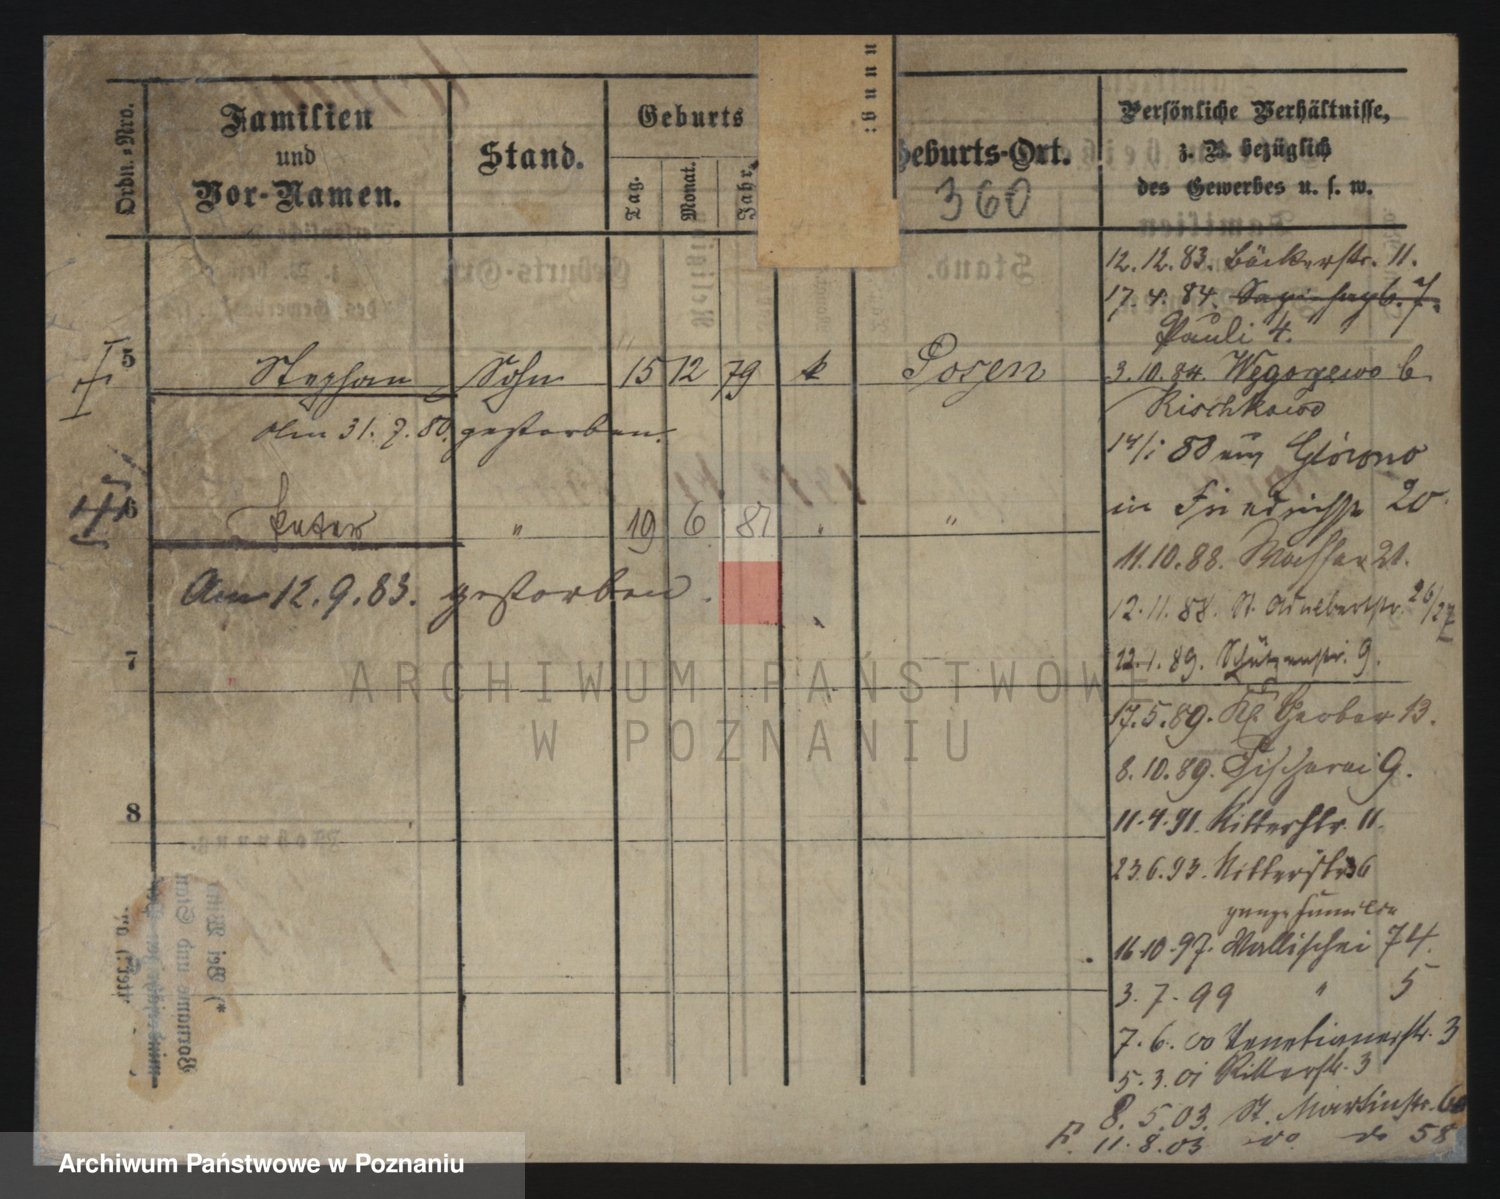 Ordn.-Nro.
Familien
und
Vor-Namen.
Stand.
Geburts
Tag.
Monat.
Jahr.
Geburts-Ort.
360
Persönliche Verhältnisse,
z. B. bezüglich
des Gewerbes u. s. w.
12. 12. 83. Bäckerstr. 11.
17. 4. 84. Sapiehapl. 7.
Pauli 4.
5 Stephan Sohn 15 12 79 k Posen
3. 10. 84. Wegorzewo b.
Kischkowo
Am 31. 7. 80. gestorben.
14/1 88 Glówno
in 20
6 Peter " 19 6 81 " "
11. 10. 88. 21.
Am 12. 9. 83. gestorben.
12. 11. 88. St. Adalbertstr. 26/27
7
22. 1. 89. Schützenstr. 9.
17. 5. 89. Kl. Gerber 13.
8. 10. 89. Fischerei 9.
8
11. 4. 91. Ritterstr. 11.
23. 6. 93. Ritterstr. 36
ganze Familie
16. 10. 97. Wallischei 74.
3. 7. 99 " 5
7. 6. 00 Venetianerstr. 3
5. 3. 01 Ritterstr. 3
8. 5. 03. St. Martinstr.
F. 11. 8. 03 do do 58
ARCHIWUM PAŃSTWOWE
W POZNANIU
Archiwum Państwowe w Poznaniu